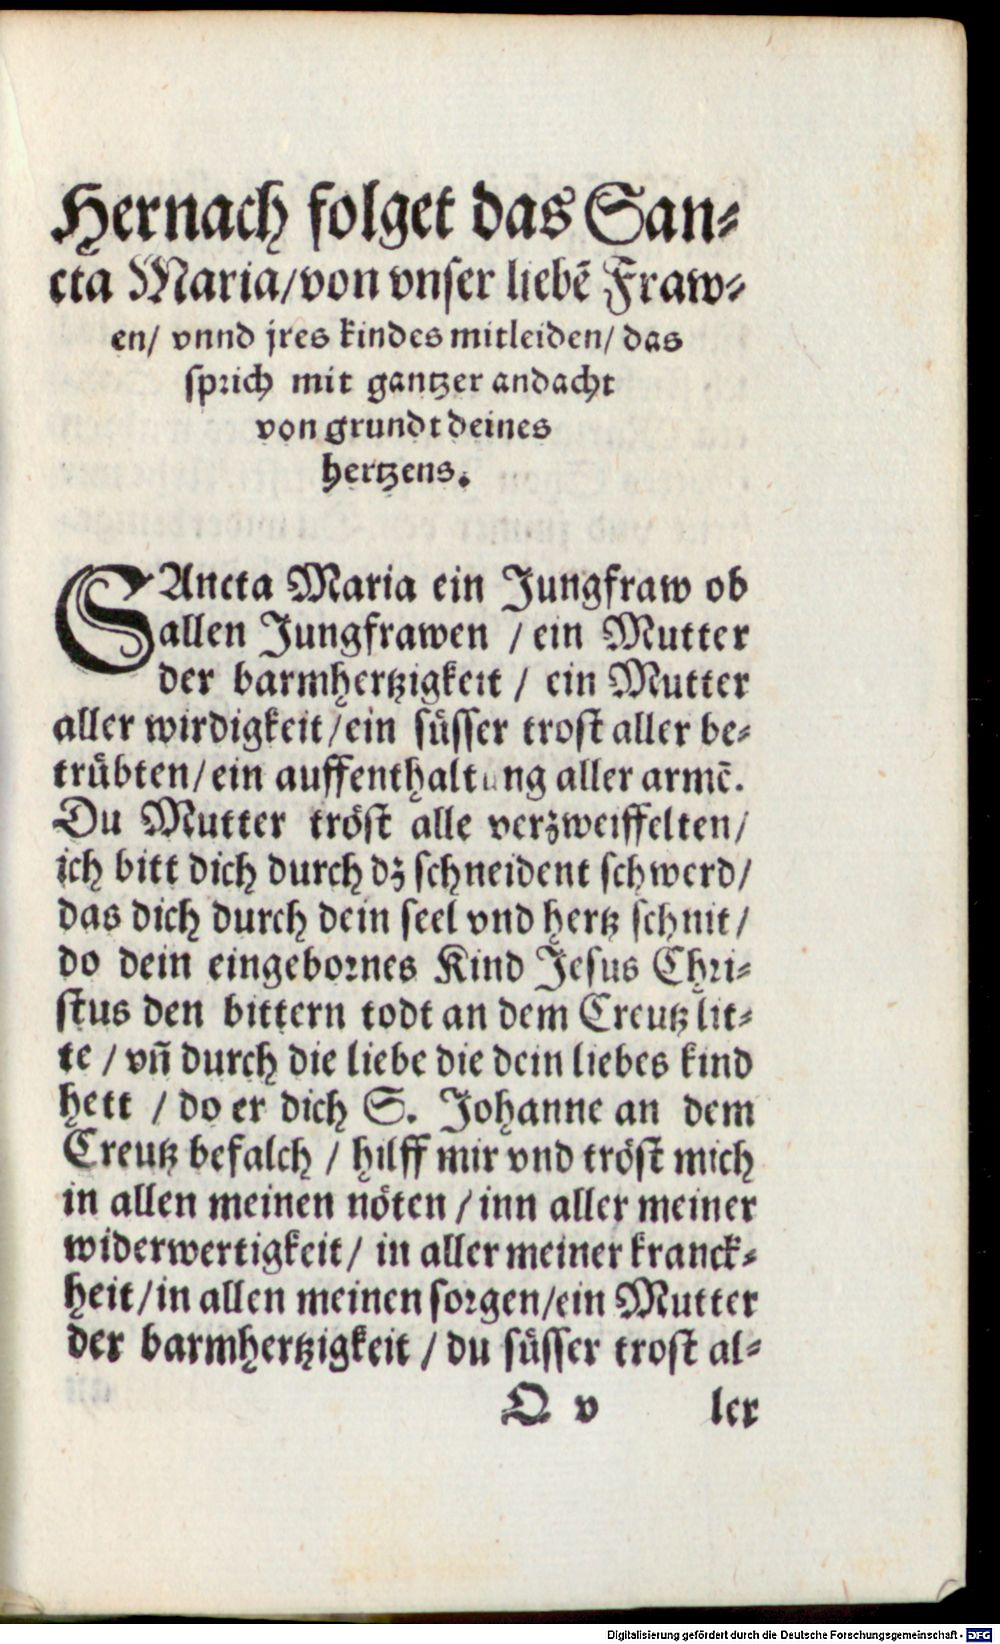 Hernach folget das San⸗
cta Maria/von vnser liebẽ Fraw⸗
en/ vnnd jres kindes mitleiden/ das
sprich mit gantzer andacht
von grundt deines
hertzens.
SAncta Maria ein Jungfraw ob
allen Jungfrawen / ein Mutter
der barmhertzigkeit / ein Mutter
aller wirdigkeit/ein süsser trost aller be⸗
trübten/ein auffenthaltung aller armẽ.
Du Mutter tröst alle verzweiffelten/
ich bitt dich durch dz schneident schwerd/
das dich durch dein seel vnd hertz schnit/
do dein eingebornes Kind Jesus Chri⸗
stus den bittern todt an dem Creutz lit⸗
te / vñ durch die liebe die dein liebes kind
hett / do er dich S. Johanne an dem
Creutz befalch / hilff mir vnd tröst mich
in allen meinen nöten / inn aller meiner
widerwertigkeit/ in aller meiner kranck⸗
heit/in allen meinen sorgen/ein Mutter
der barmhertzigkeit / du süsser trost al⸗
Q v ler
Digitalisierung gefördert durch die Deutsche Forschungsgemeinschaft - DFG